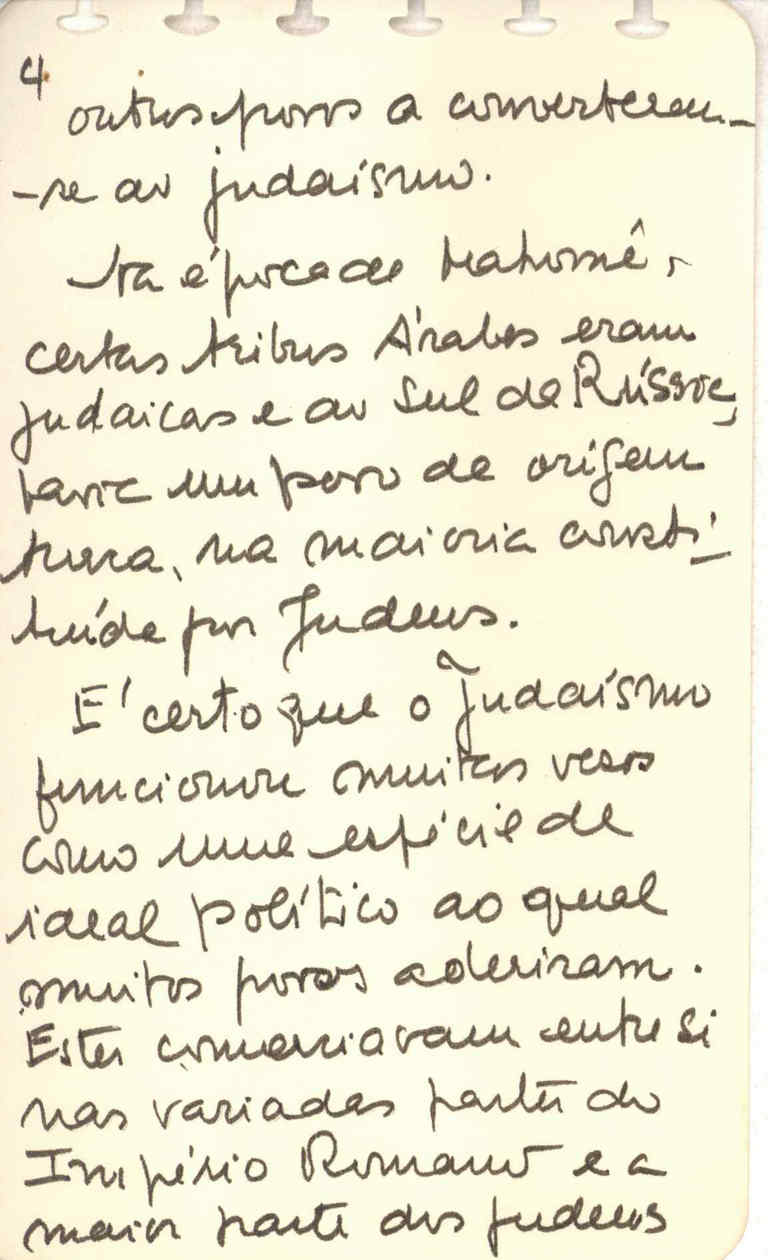 4
outros povos a converterem-
-se ao judaísmo.
Na época de Mahomê,
certas tribus Árabes eram
judaicas e ao sul da Rússia,
havia um povo de origem
turca, na maioria consti-
tuída por Judeus.
E' certo que o Judaísmo
funcionou muitas vezes
como uma espécie de
ideal político ao qual
muitos povos aderiram.
Estes comerciavam entre si
nas variadas partes do
Império Romano e a
maior parte dos judeus